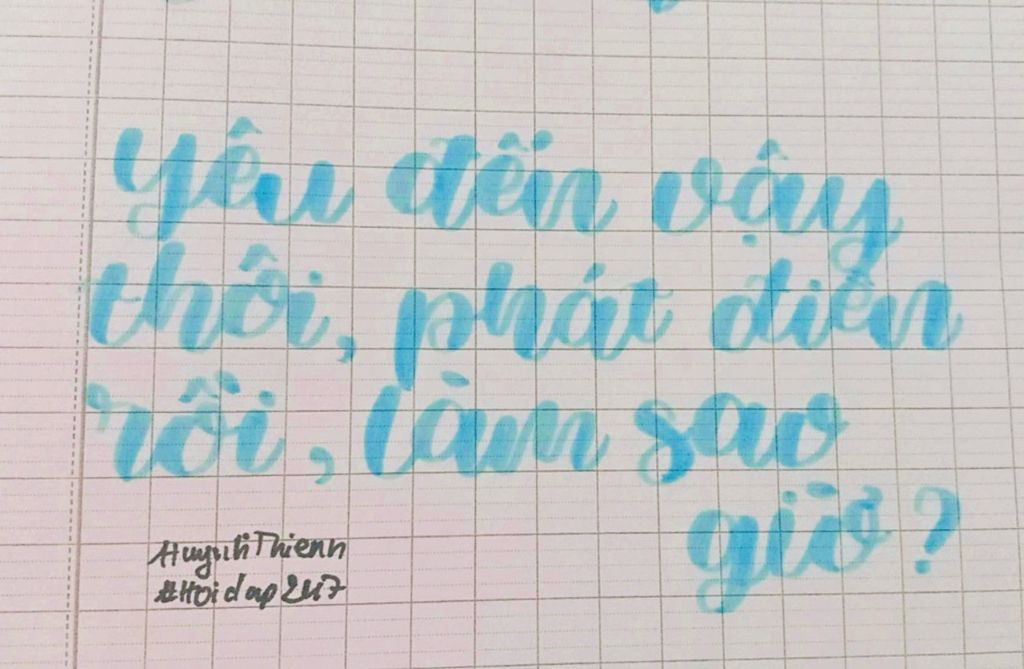 yêu đến vậy
thôi, phát điên
rồi, làm sao
giờ?
HuynhThienn
#Hoidap247